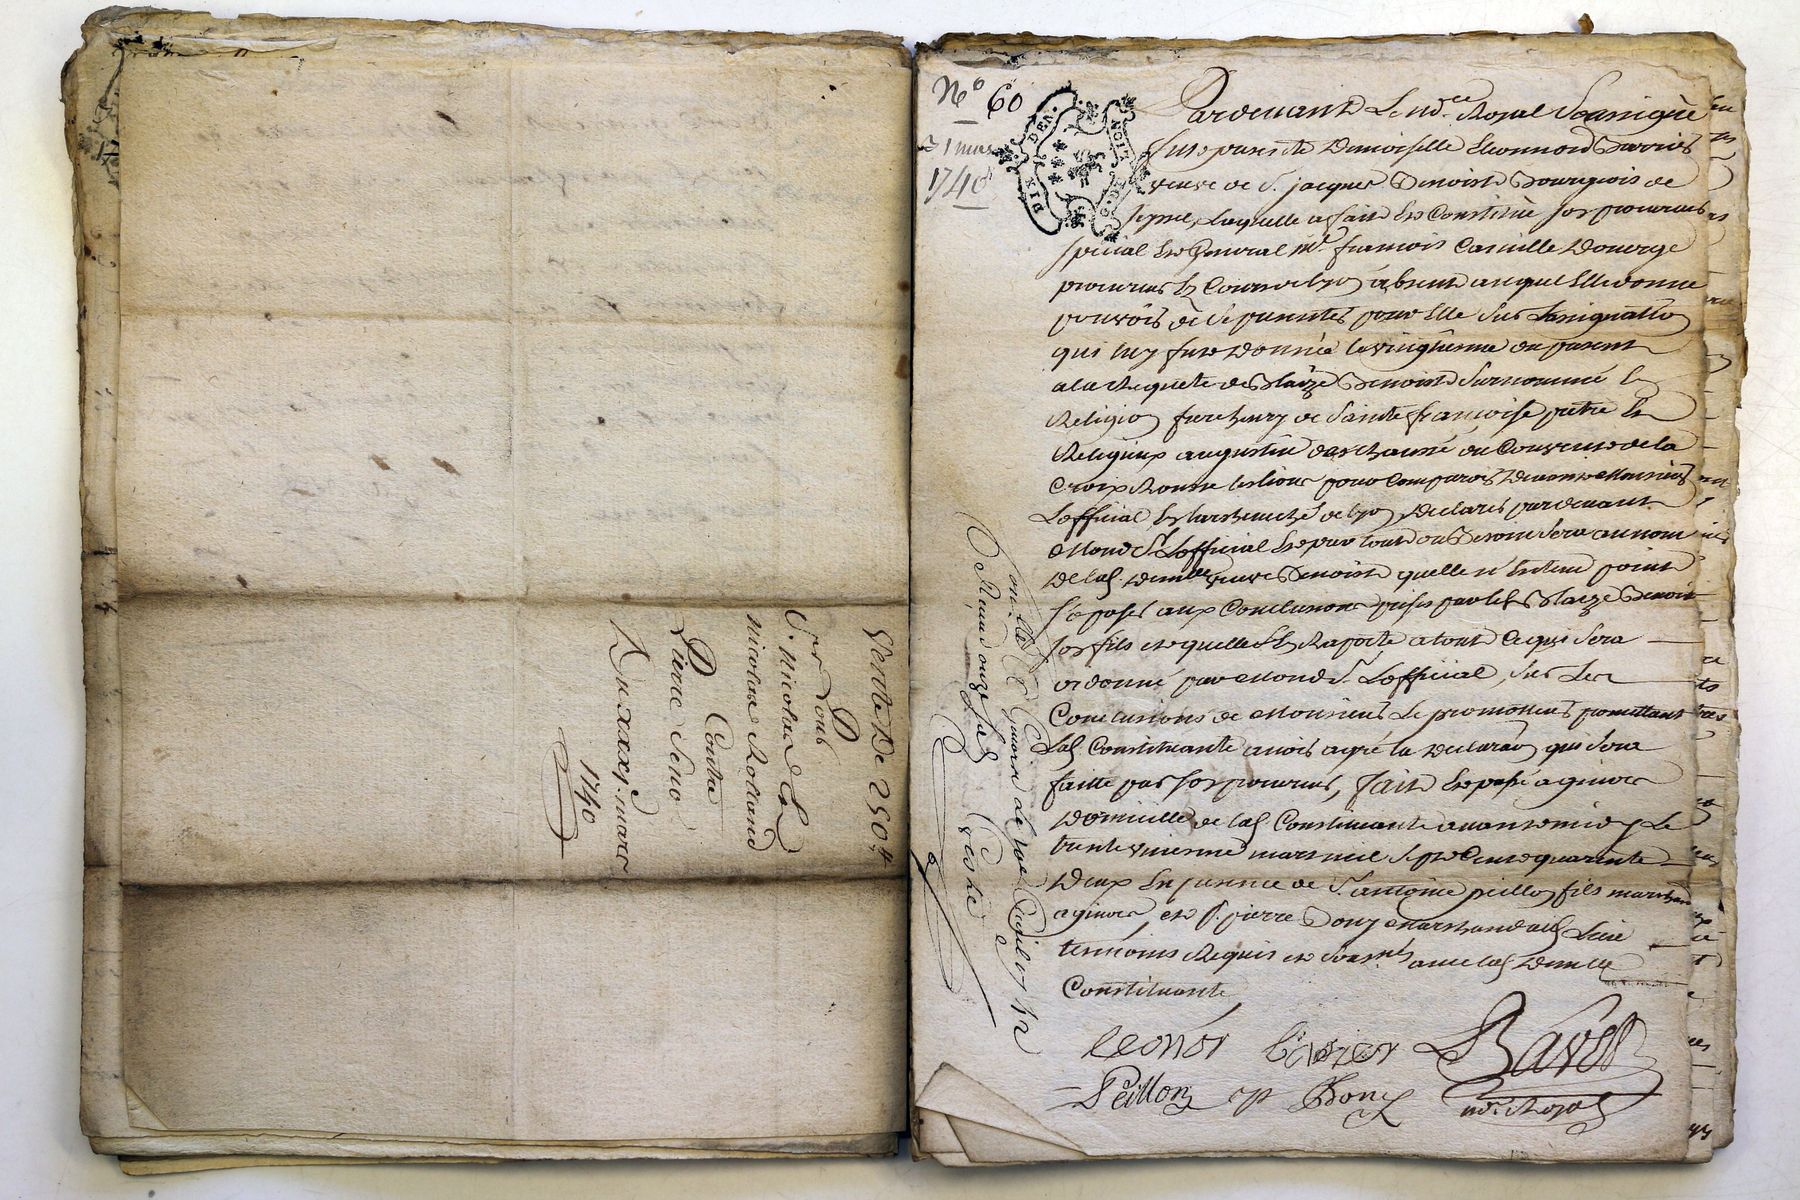 Vente De 250 ₶
Pour
Sr. nicolas
nicolas Rolland
Contre
Pierre Seno
Du xxxj. mars
1740
No 60
31 mars
1740
DIX DEN.
G. DE LION
Pardevant Le nore Royal Soussigné
fut presente Demoiselle Eleonnord
veuve de Sr. jacques Benoist Bourgeois de
laquelle a fait et Constitué son procureur
special et General Me. francois Camille
procureur Es Cours de lyon absent auquel Elle donne
pouvoir de se presenter pour Elle Sur Lassignation
qui luy fut donnée le vingtieme du present
a la Requete de Blaize Benoist Surnommé En
Religion frere henry de Sainte françoise pretre Et
Religieux augustin deschaussé du Couvent de la
Croix Rousse les lion pour Comparoir Devant Monsieur
Lofficial Et Larchevché de lyon Declarer pardevant
mond. Sr. Lofficial Et par tout ou Besoin Sera au nom
de lad. Demlle veuve Benoist quelle n'Entend point
s'oposer aux Conclusions prises par led. Blaize Benoit
son fils et quelle S'En Raporte a tout Ce qui Sera
ordonné par mond. Sr. Lofficial, Sur Les
Conclusions de Monsieur Le promotteur promettant
Lad. Constituante avoir agré la Declaraon qui Sera
faitte par son procureur, fait et passé a givors
Domicille de lad. Constituante avant midy Le
trente unieme mars mil Sept Cent quarante
Deux En presence de Sr. antoine peillon fils marchand
a givors, et Sr. pierre Bony Marchand aud. Lieu
temoins Requis et Soussnés avec lad. Demlle
Constituante
leonor
Peillon
Bony
Ravet
nore. Royal